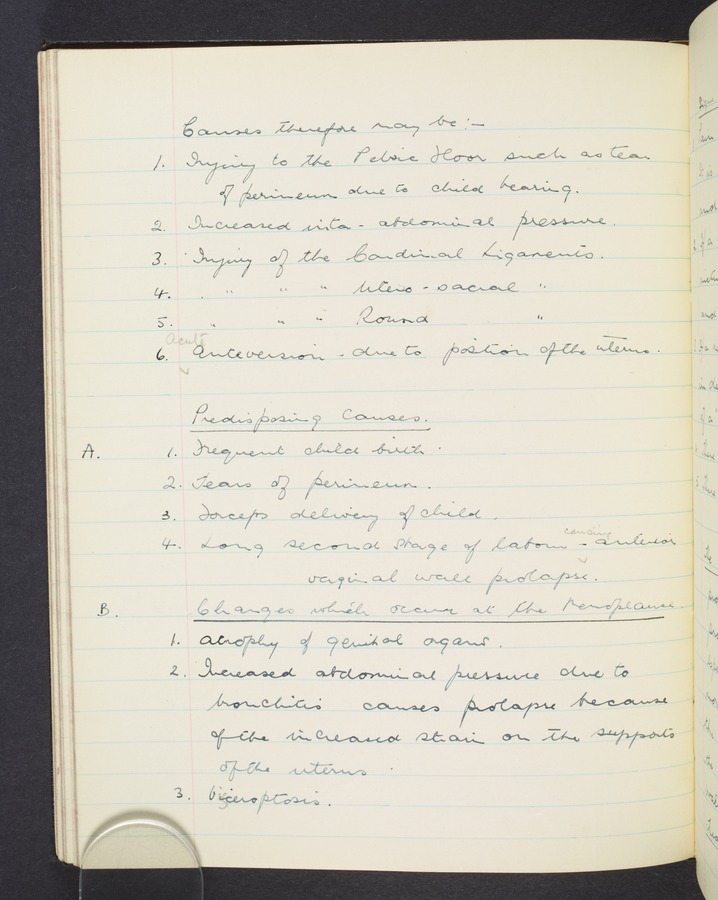 Causes therefore may be:-
1. Injury to the Pelvic Floor such as tear
of perineum due to child bearing.
2. Increased intra-abdominal pressure.
3. Injury of the Cardinal Ligaments.
4. " " " Utero-sacral "
5. " " " Round "
Acute
6. Anteversion - due to position of the uterus.
Predisposing Causes.
A. 1. Frequent child birth.
2. Tears of perineum.
3. Forceps delivery of child.
4. Long second stage of labour - causing anterior
vaginal wall prolapse.
B. Changes which occur at the Menopause.
1. atrophy of genital organs.
2. Increased abdominal pressure due to
bronchitis causes prolapse because
of the increased strain on the supports
of the uterus.
3. Visceroptosis.